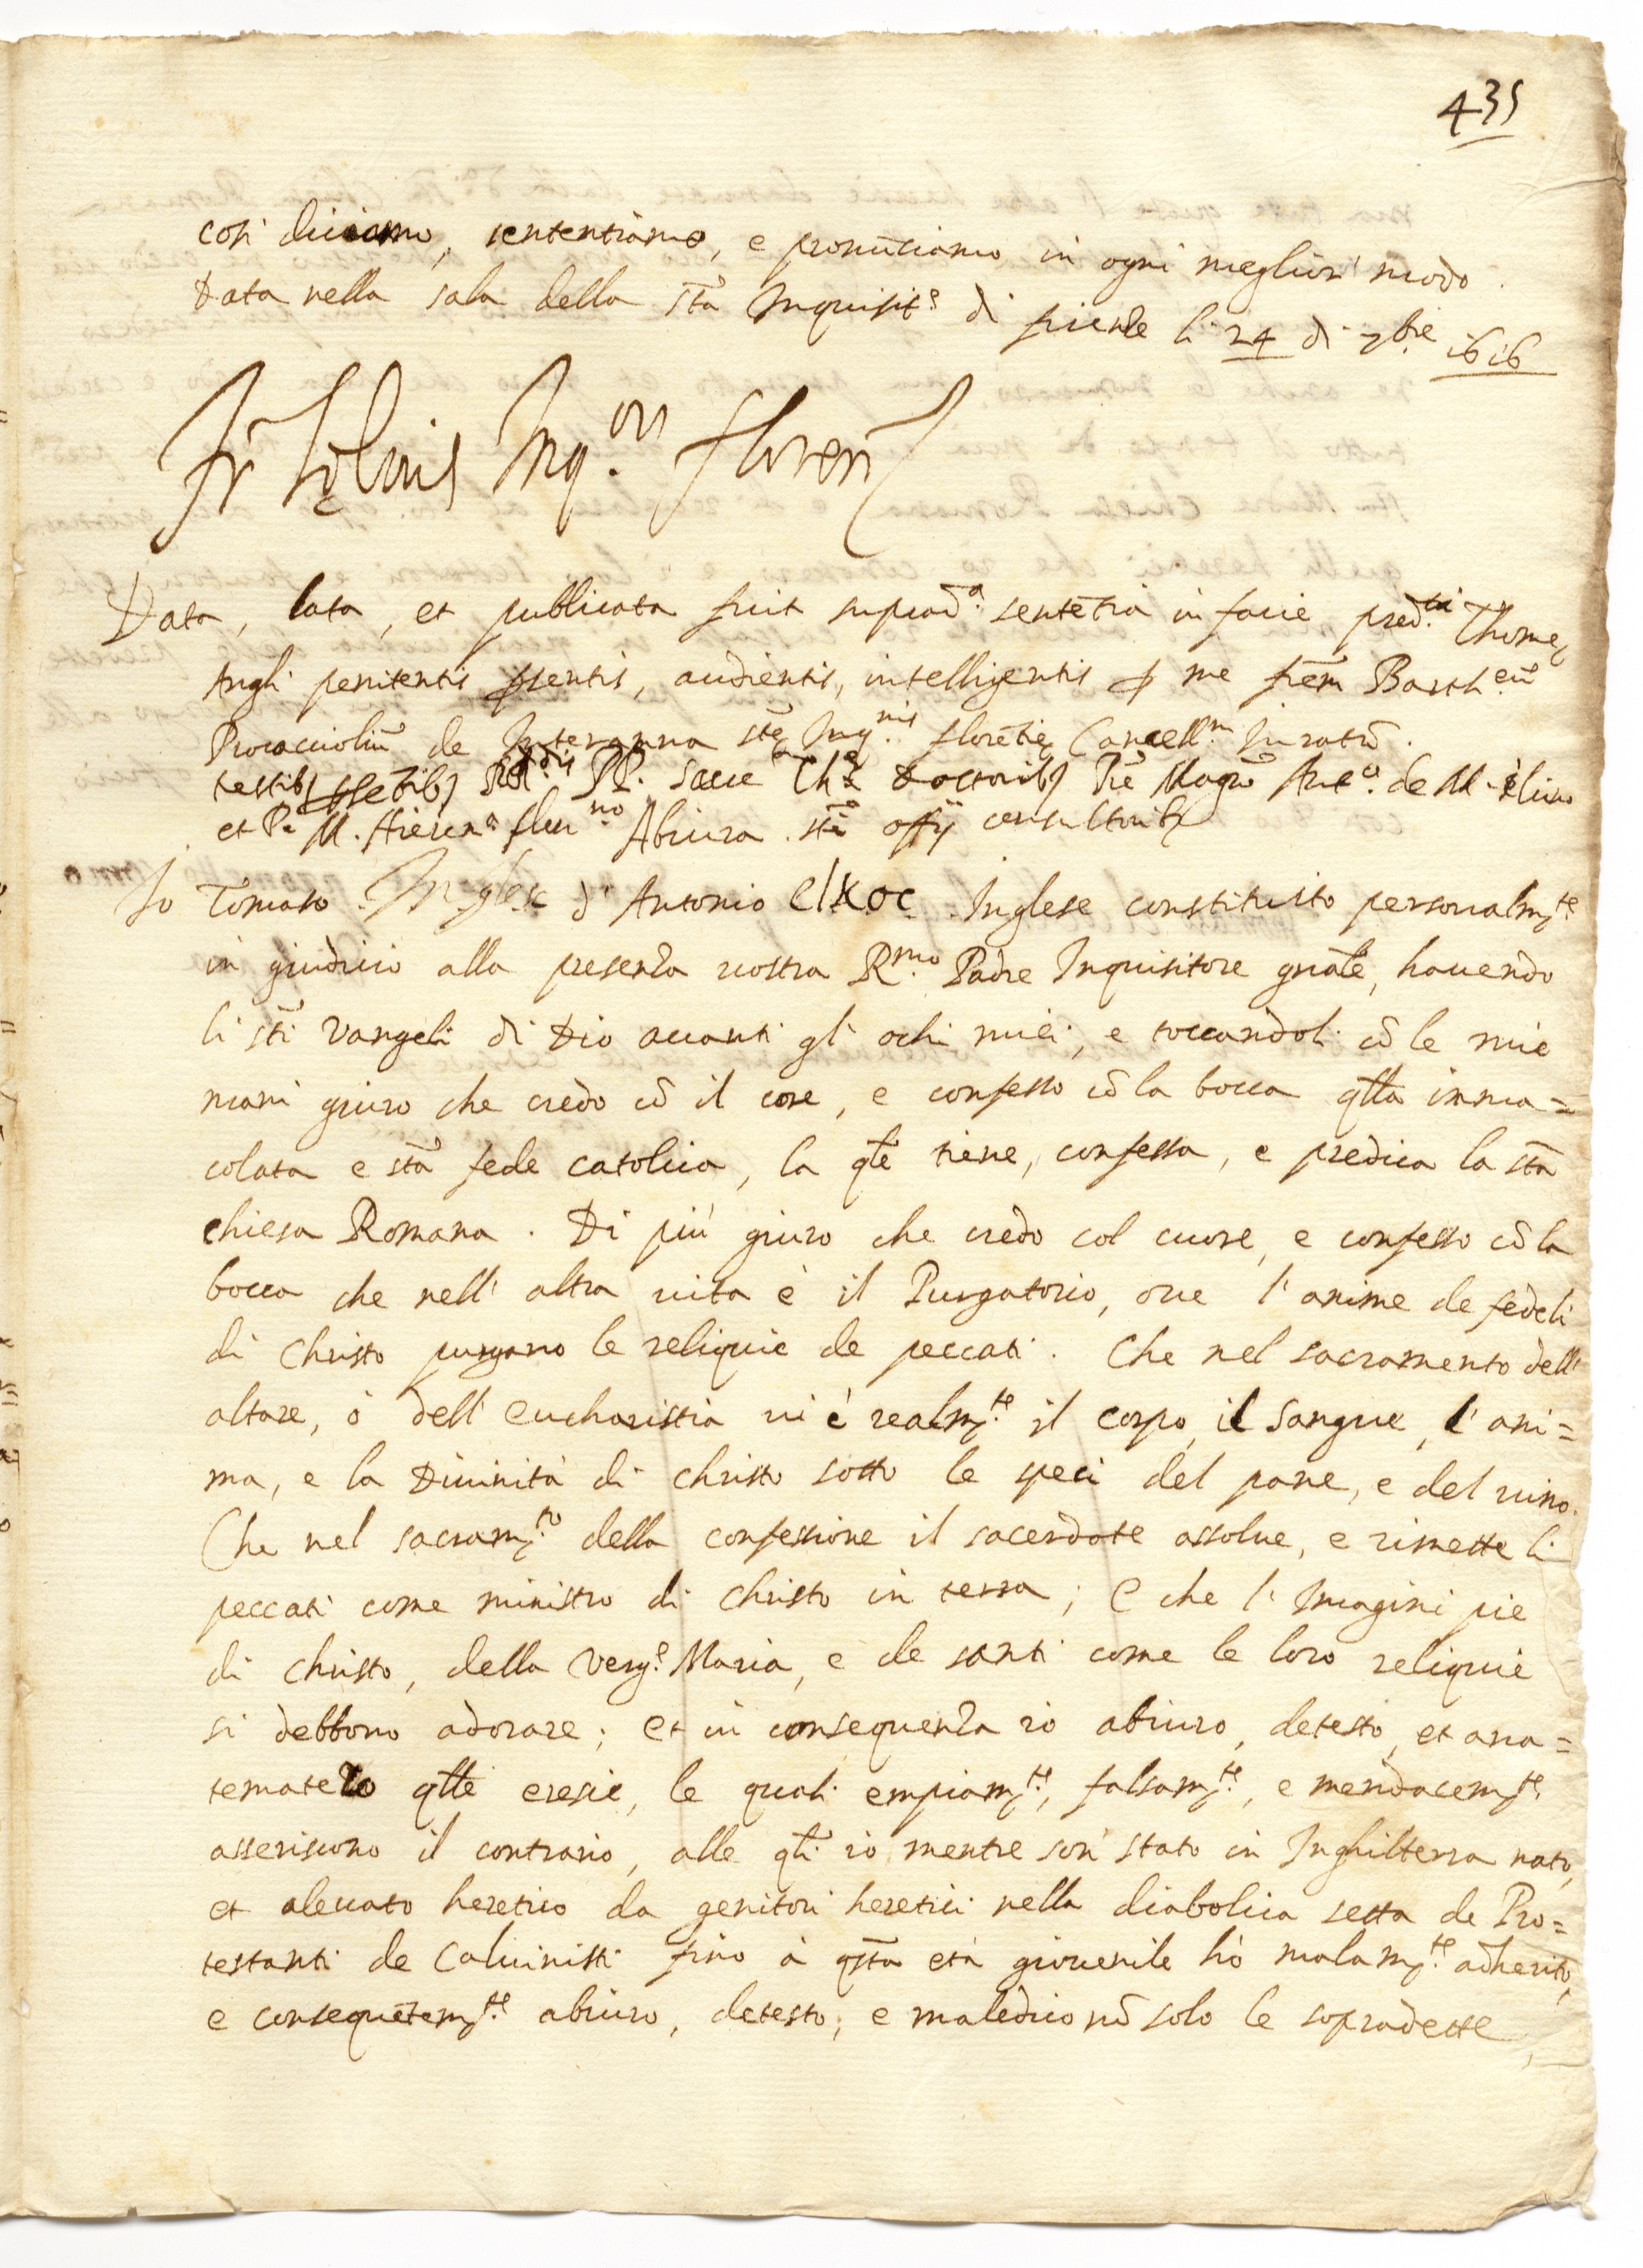 435
così diciamo, sententiamo, e pronūtiamo in ogni meglior modo.
Data nella sala della sta Inquisite di firenze li 24 di 7bre 1616
Fr Lelius Inqor floren
Data, lata, et publicata fuit suprad.a sentētia in facie pred.ti Thome
Angli penitentis pſentis, audientis, intelligentis p me frēm Barth.eū
Procacciolū de Interamna ste Inq.nis florētie Cancell.m Iuratū.
testibȝ pſētibȝ PP. Sacre doctoribȝ Pre Magro Ant.o de
et P.e M. Abiura. sti offij consultoribȝ
Io Tomaso Inglese d' Antonio Elxoc Inglese constituito personalmte
in giudicio alla presenza vostra R.mo Padre Inquisitore gnāle, havendo
li sti Vangeli di Dio avanti gli ochi miei, e toccandoli cō le mie
mani giuro che credo cō il core, e confesso cō la bocca qlla imma=
colata e sta fede catolica, la qle tiene, confessa, e predica la sta
chiesa Romana. Di più giuro che credo col cuore, e confesso cō la
bocca che nell' altra vita è il Purgatorio, ove l' anime de fedeli
di Christo purgano le reliquie de peccati. Che nel sacramento dell'
altare, ò dell' eucharistia vi è realmte il corpo, il sangue, l' ani=
ma, e la Divinità di christo sotto le speci del pane, e del vino.
Che nel sacramto della confessione il sacerdote assolve, e rimette li
peccati come ministro di christo in terra; e che l' Imagini pie
di christo, della Verge Maria, e de santi come le loro reliquie
si debbono adorare; et in consequenza io abiuro, detesto, et ana=
tematezo qlle eresie, le quali empiamte, falsamte, e mendacemte
asseriscono il contrario, alle qli io mentre son' stato in Inghilterra nato,
et alevato heretico da genitori heretici nella diabolica setta de Pro=
testanti de Calvinisti fino à qsta età giovenile hò malamte adherito,
e consequētemte abiuro, detesto, e maledico nō solo le sopradette,